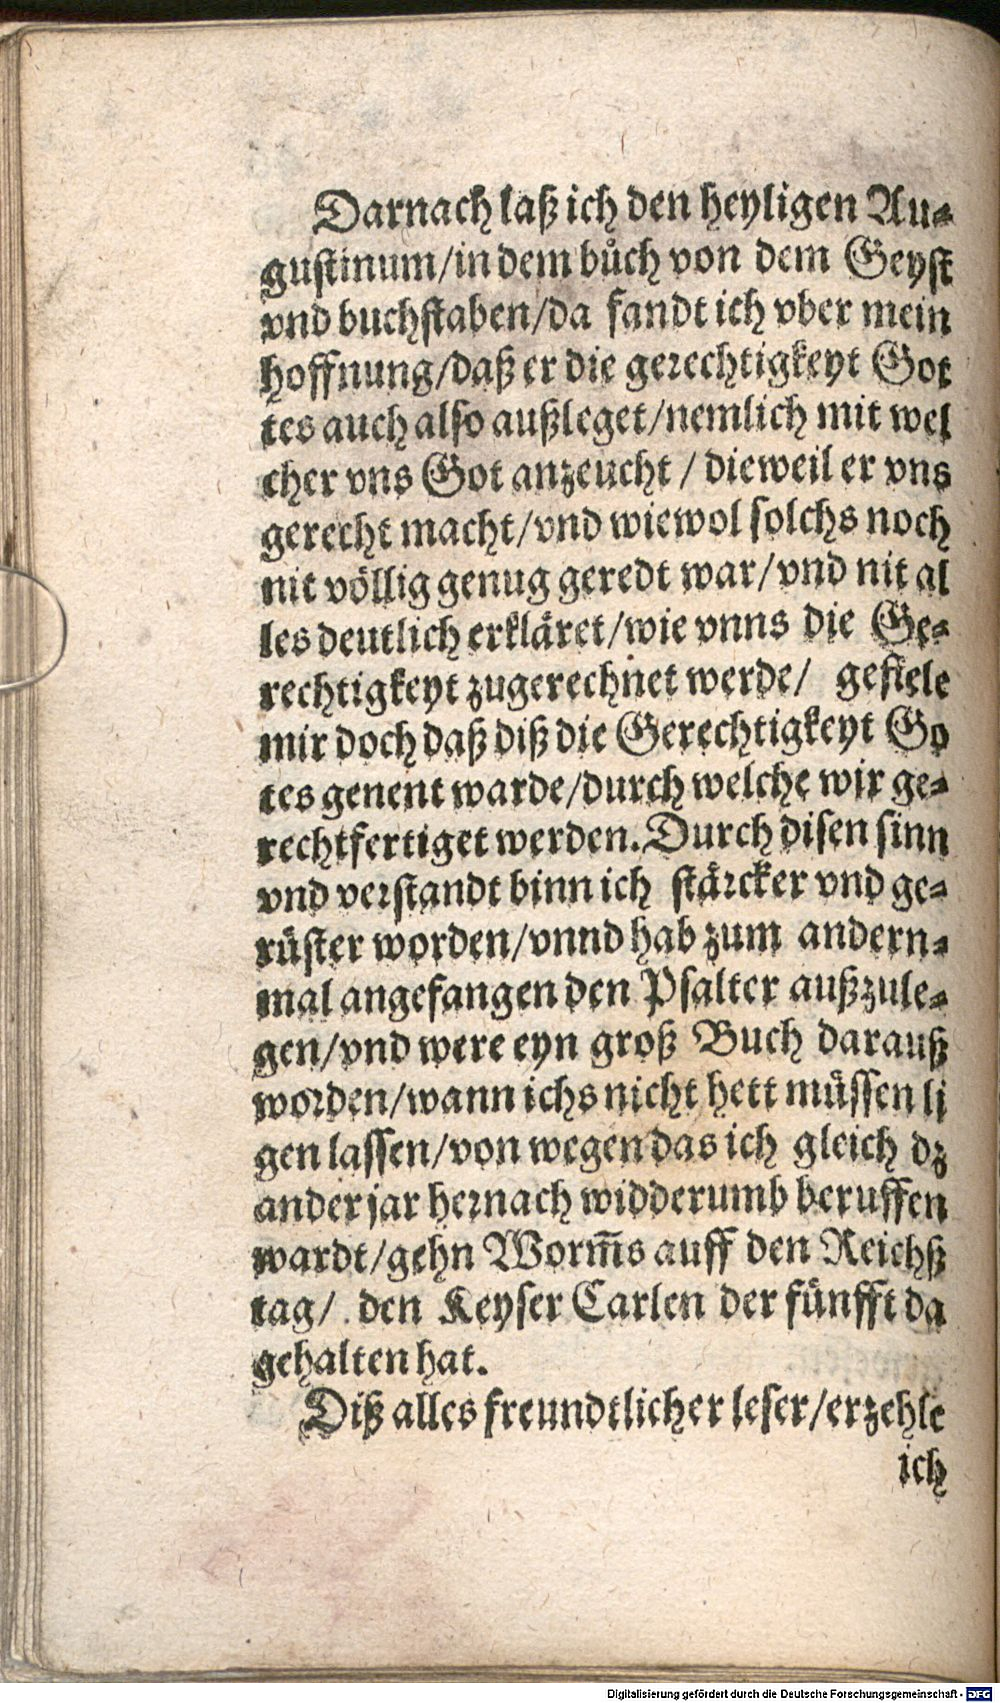 Darnach laß ich den heyligen Au-
gustinum/in dem bůch von dem Geyst
vnd buchstaben/da fandt ich vber mein
hoffnung/daß er die gerechtigkeyt Got
tes auch also außleget/nemlich mit wel
cher vns Got anzeucht / dieweil er vns
gerecht macht/vnd wiewol solchs noch
nit völlig genug geredt war/vnd nit al
les deutlich erkläret/wie vnns die Ge-
rechtigkeyt zugerechnet werde/ gefiele
mir doch daß diß die Gerechtigkeyt Go
tes genent warde/durch welche wir ge-
rechtfertiget werden. Durch disen sinn
vnd verstandt binn ich stärcker vnd ge-
rüster worden/vnnd hab zum andern-
mal angefangen den Psalter außzule-
gen/vnd were eyn groß Buch darauß
worden/wann ichs nicht hett müssen li
gen lassen/von wegen das ich gleich dz
ander jar hernach widderumb beruffen
wardt/gehn Worm̄s auff den Reichß
tag/ den Keyser Carlen der fünfft da
gehalten hat.
Diß alles freundtlicher leser/erzehle
ich
Digitalisierung gefördert durch die Deutsche Forschungsgemeinschaft - DFG